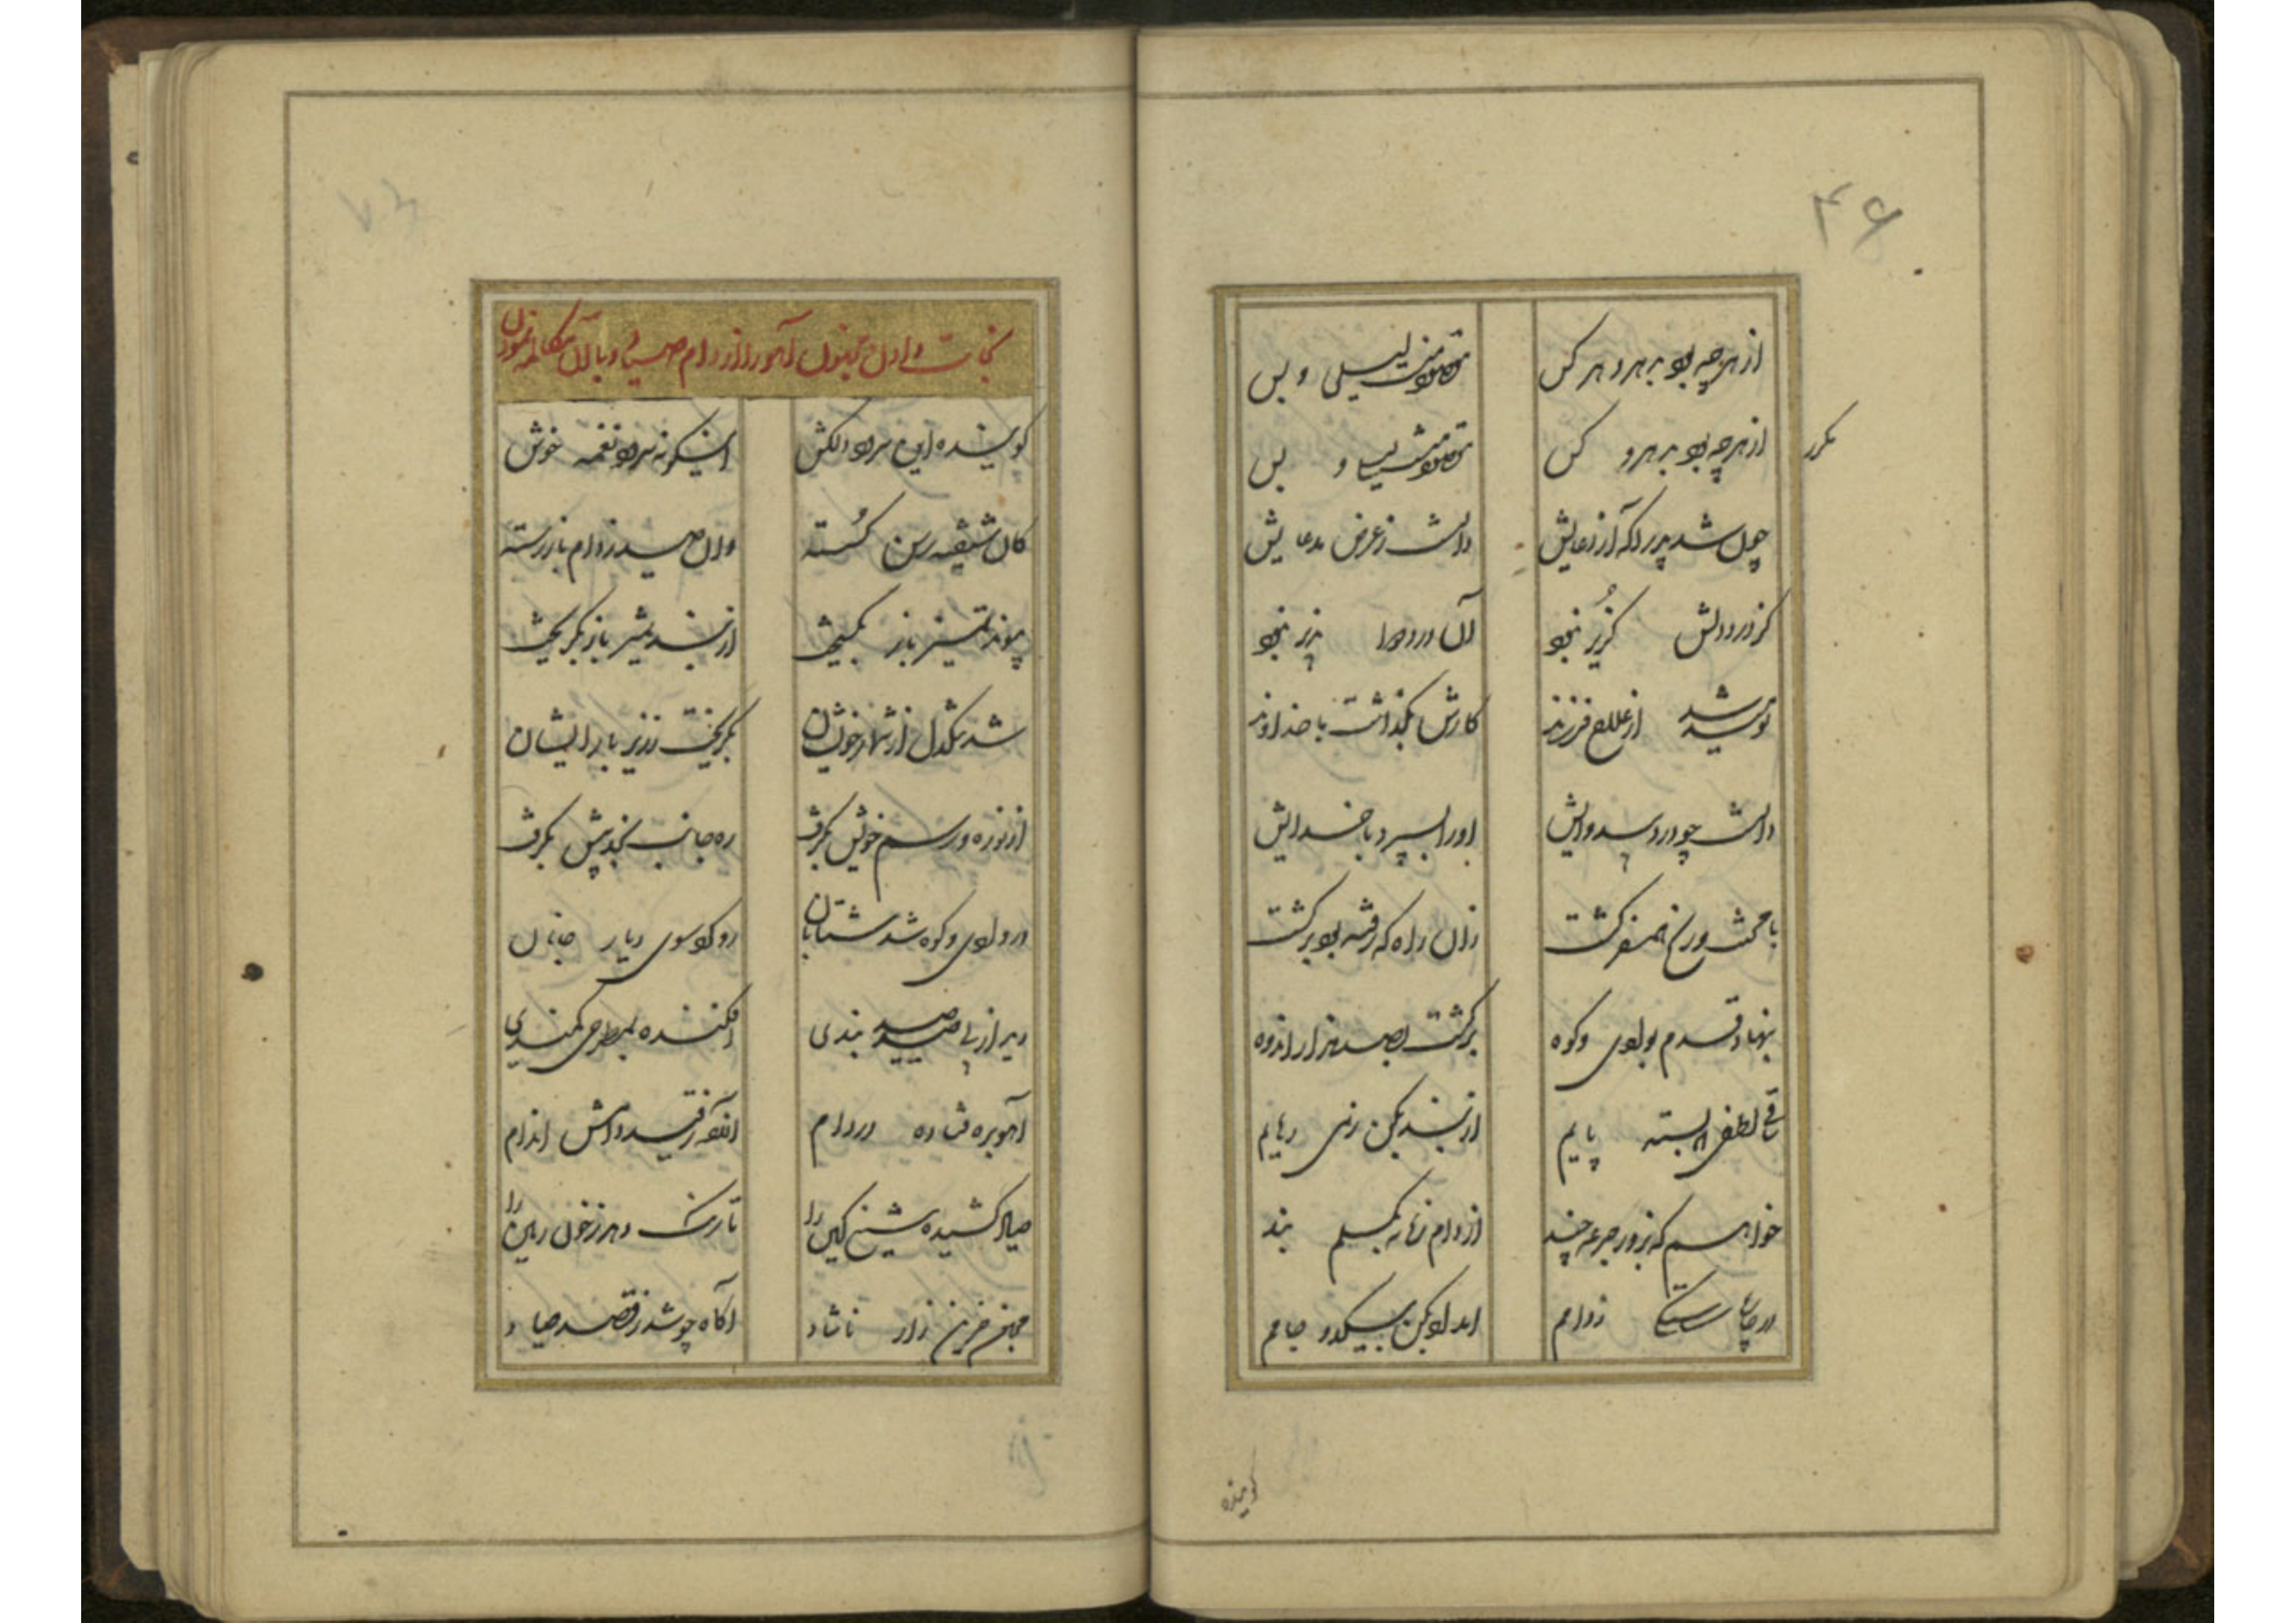 ۴۶
از هرچه بود بهر و هر کس مقصود منست لیلی و بس
مکرر از هرچه بود بهر و کس مقصود منست لیلی و بس
چون شد پدر آگه از دعایش دانست ز عرض مدعایش
کز درد دلش گزیر نبود آن درد دوا پذیر نبود
نومید شد از علاج فرزند کارش بگذاشت با خداوند
دانست چو درد بی دوایش او را بسپرد با خدایش
با محنت و رنج همسفر گشت زان راه که رفته بود برگشت
بنهاد قدم بوادی و کوه برگشت بصد هزار اندوه
ساقی لطفی که بسته پایم از بند بکن زمی رهایم
خواهم که بزور جرعه چند از دام زمانه بگسلم بند
در پای شکستگی ز دامم امداد بکن بیک دو جامم
گوینده
نجات دادن مجنون آهو را از دام صیاد و با آن مکالمه نمودن
گوینده این سرود دلکش اینگونه سرود نغمه خوش
کان شیفته رسن گسسته وان صید ز دام باز رسته
پیوند تمیز باز بگسیخت از بند پدر باز بگریخت
شد تنگدل از شهر خویشان بگریخت ز زیر بار ایشان
از نو ره و رسم خویش بگرفت ره جانب نجد پیش بگرفت
در وادی و کوه شد شتابان رو کرد سوی دیار جانان
دید از پی صید صید بندی افکنده بهر طرف کمندی
آهو بره فتاده در دام آشفته ز قید دامش اندام
صیاد کشیده تیغ کین را تا رنگ دهد ز خون زمین را
مجنون حزین زار ناشاد آگاه چو شد ز قصد صیاد